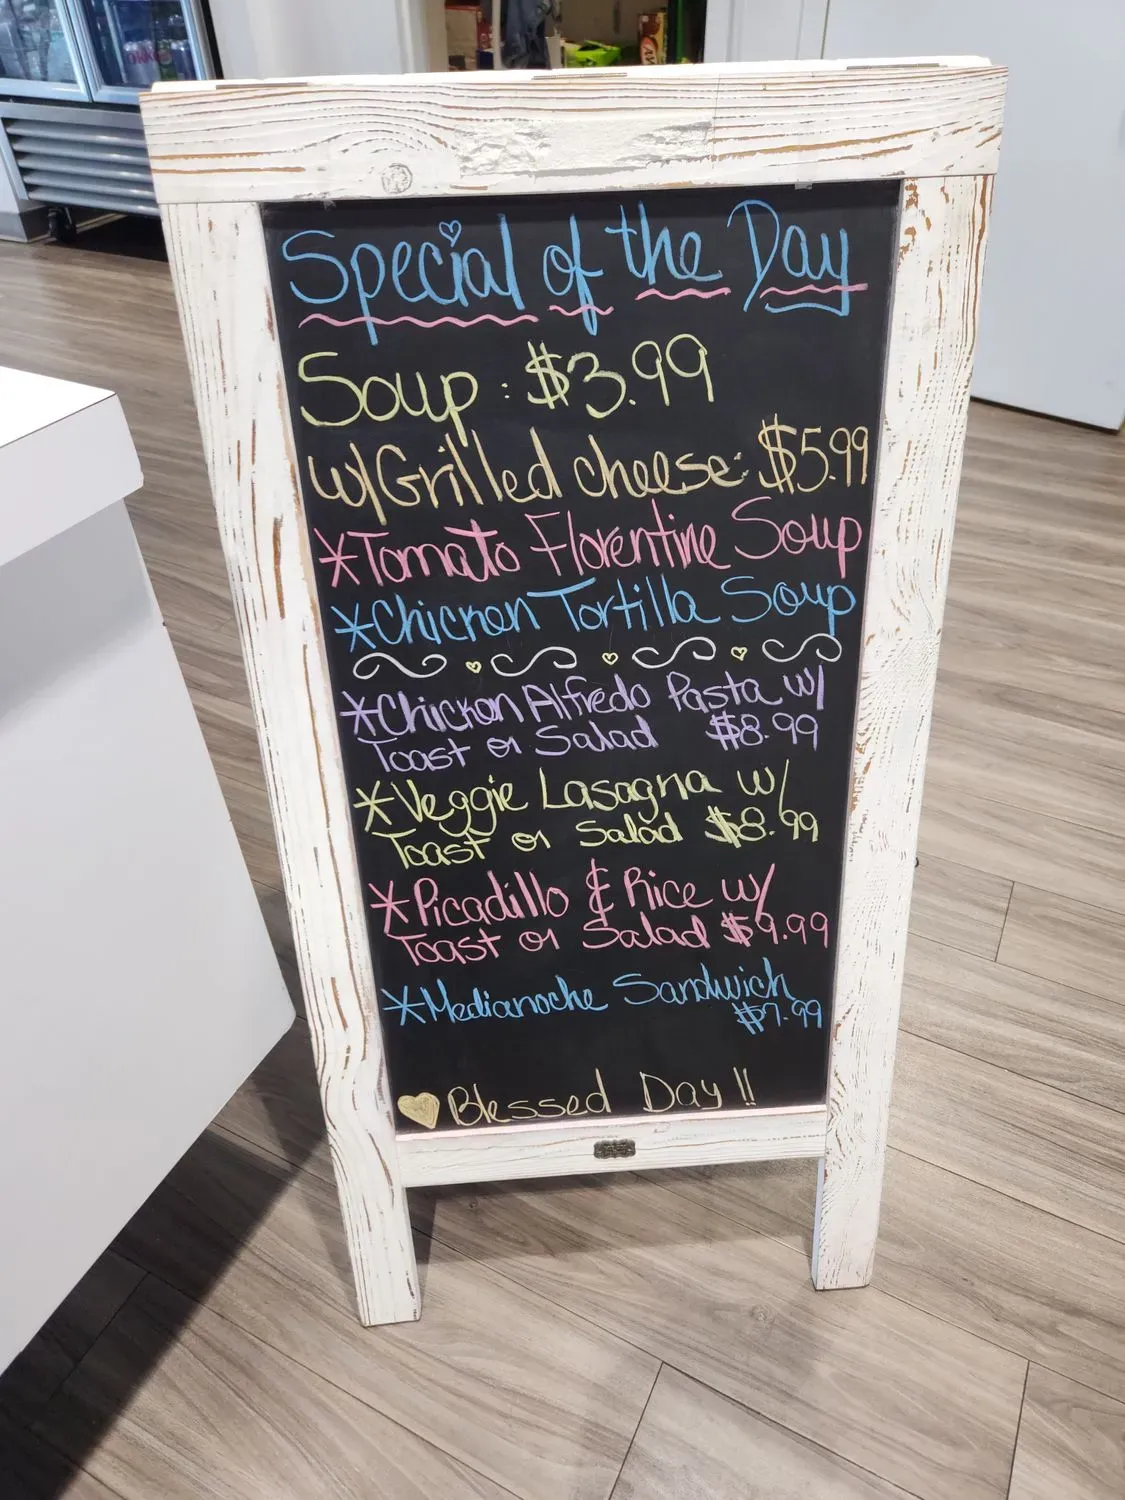 Special of the Day
Soup: $3.99
w/Grilled cheese: $5.99
*Tomato Florentine Soup
*Chicken Tortilla Soup
*Chicken Alfredo Pasta w/
Toast or Salad $8.99
*Veggie Lasagna w/
Toast or Salad $8.99
*Picadillo & Rice w/
Toast or Salad $9.99
*Medianoche Sandwich
$7.99
Blessed Day!!